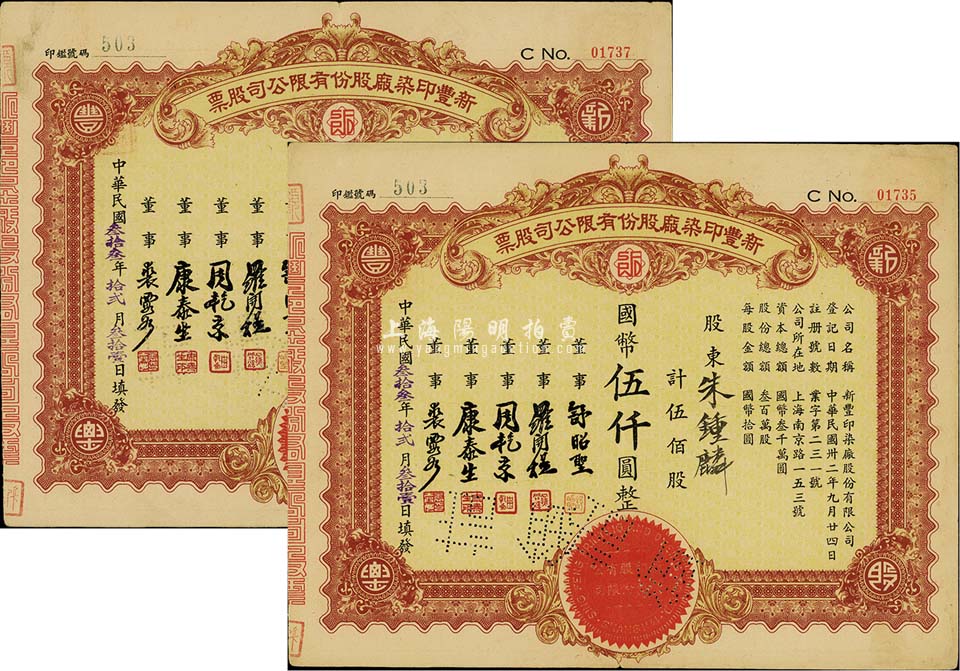 印鑑號碼 503
C No. 01737
新豐印染廠股份有限公司股票
豐
新
董事
董事 周乾京
董事 康泰生
董事
中華民國叁拾叁年拾貳月叁拾壹日填發
樂
印鑑號碼 503
C No. 01735
新豐印染廠股份有限公司股票
豐
新
公司名稱 新豐印染廠股份有限公司
登記日期 中華民國卅二年九月廿四日
註册號數 業字第二三一號
公司所在地 上海南京路一五三號
資本總額 國幣叁千萬圓
股份總額 叁百萬股
每股金額 國幣拾圓
股東 朱鍾麟
計伍佰股
國幣伍仟圓整
董事 舒昭聖
董事
董事 周乾京
董事 康泰生
董事
中華民國叁拾叁年拾貳月叁拾壹日填發
樂
股
上海陽明拍賣
www.yangmingauction.com